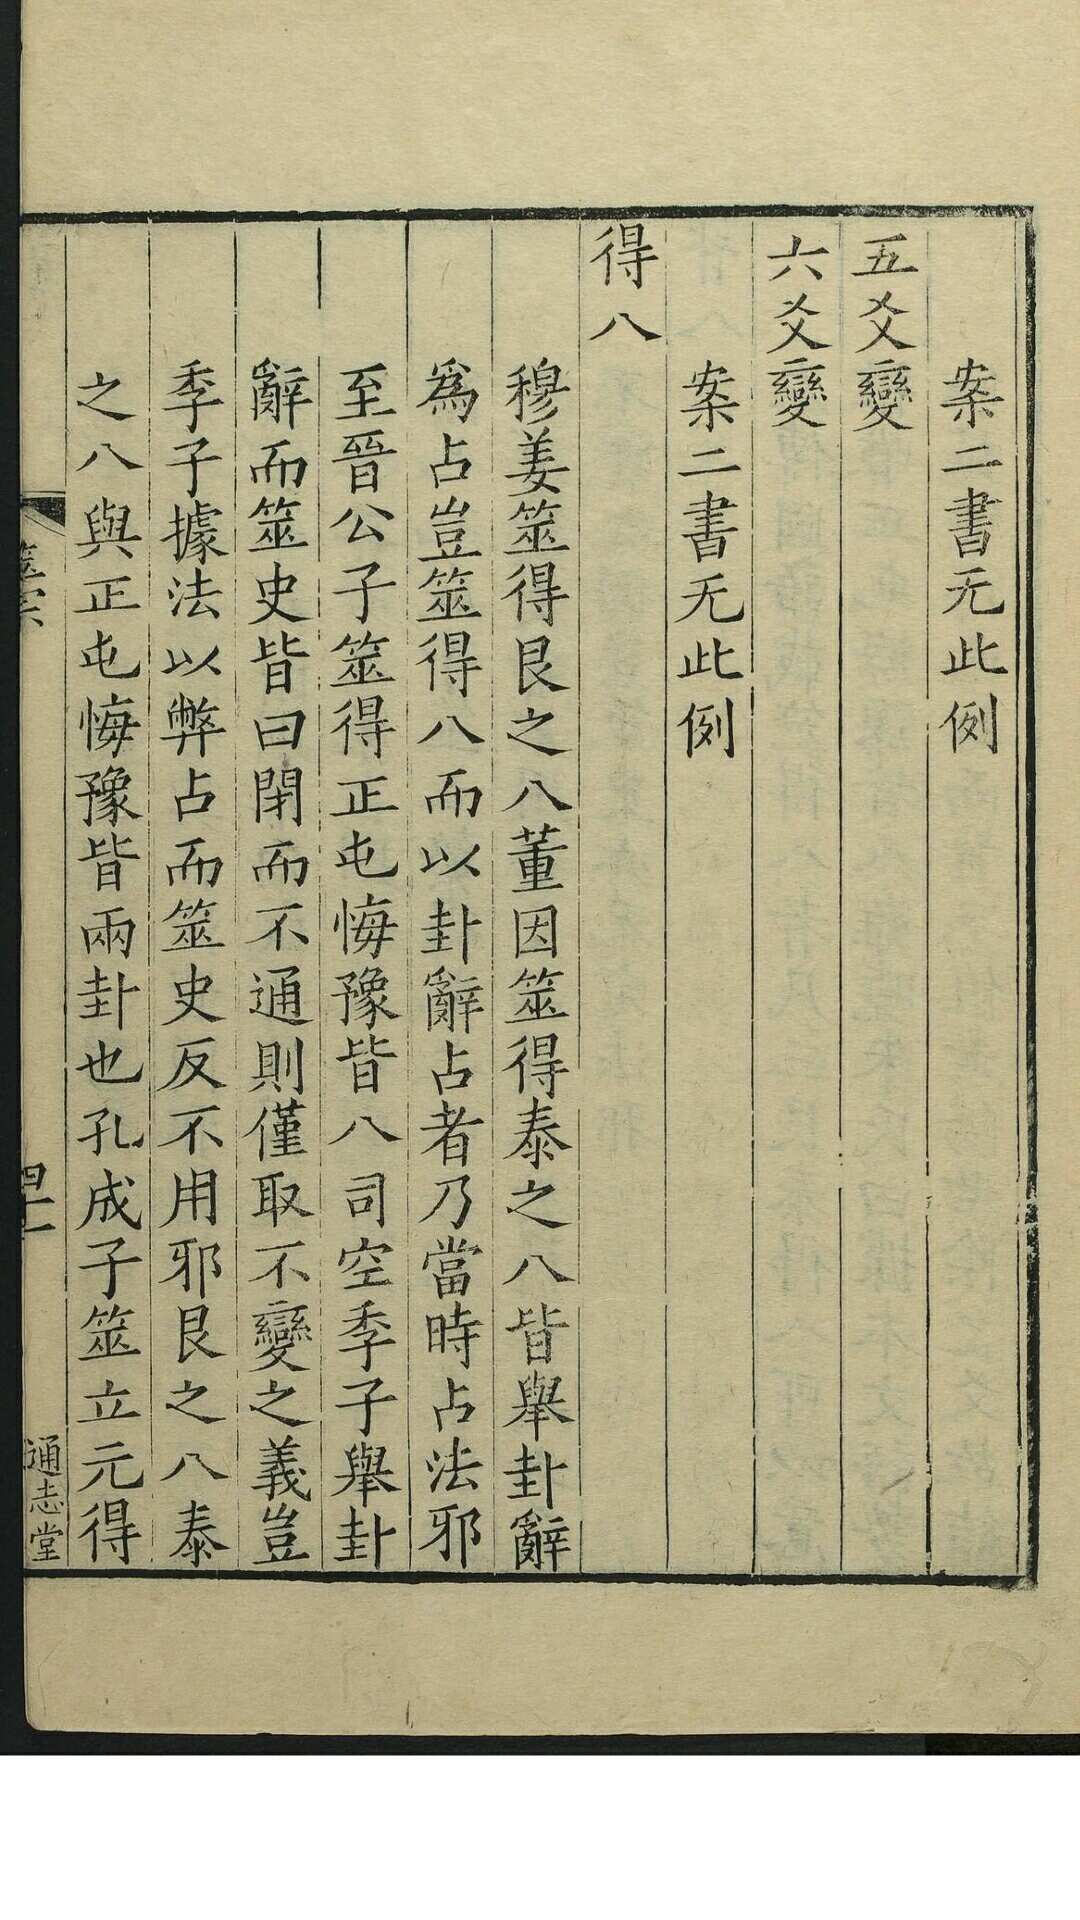 案二書无此例
五爻變
六爻變
案二書无此例
得八
穆姜筮得艮之八董因筮得泰之八皆舉卦辭
爲占豈筮得八而以卦辭占者乃當時占法邪
至晉公子筮得正屯悔豫皆八司空季子舉卦
辭而筮史皆曰閉而不通則僅取不變之義豈
季子據法以弊占而筮史反不用邪艮之八泰
之八與正屯悔豫皆兩卦也孔成子筮立元得
筮宗
通志堂